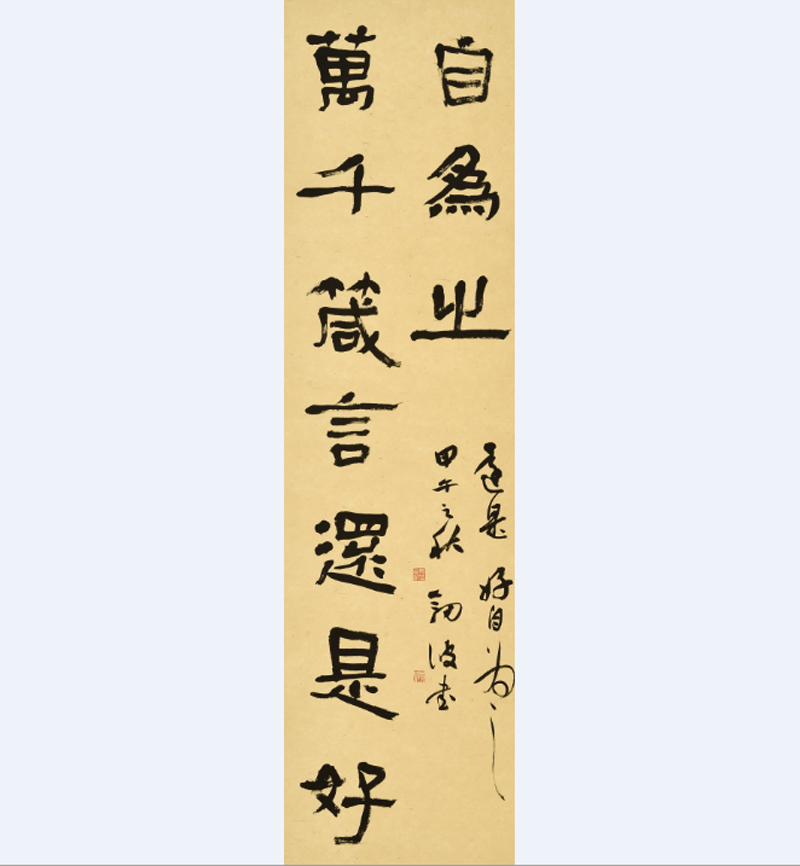 萬千箴言還是好
自為之
甲午之秋 波书
還是好自为之